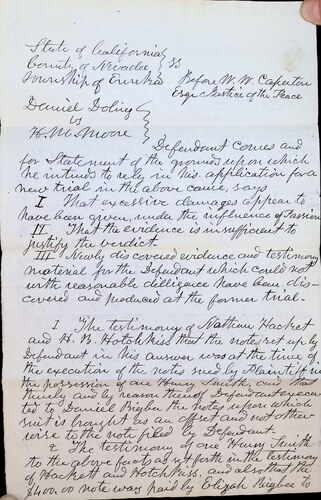 State of California
County of Nevada } SS
Township of Eureka Before W. W. Caperton
Esqr Justice of the Peace
Daniel Doling
vs
H. M. Moore
Defendant comes and
for Statement of the grounds upon which
he intends to rely in his application for a
new trial in the above cause, says
I That excessive damages appear to
have been given, under the influence of Passion
II That the evidence is insufficient to
justify the verdict.
III Newly discovered evidence and testimony
material for the Defendant which could not
with reasonable dilligence have been dis-
covered and produced at the former trial.
1 The testimony of Nathan Hacket
and H. B. Hotchkiss that the notes set up by
Defendant in his answer was at the time of
the execution of the notes sued by Plaintiff in
the possession of one Henry Smith, and that
thereby and by reason thereof Defendant execu
ted to Daniel the notes upon which
suit is brought as an offset and not other
wise to the note filed by Defendant
2 The testimony of one Henry Smith
to the above facts as set forth in the testimony
of Hackett and Hotchkiss, and also that the
$400.00 note was paid by Elijah to